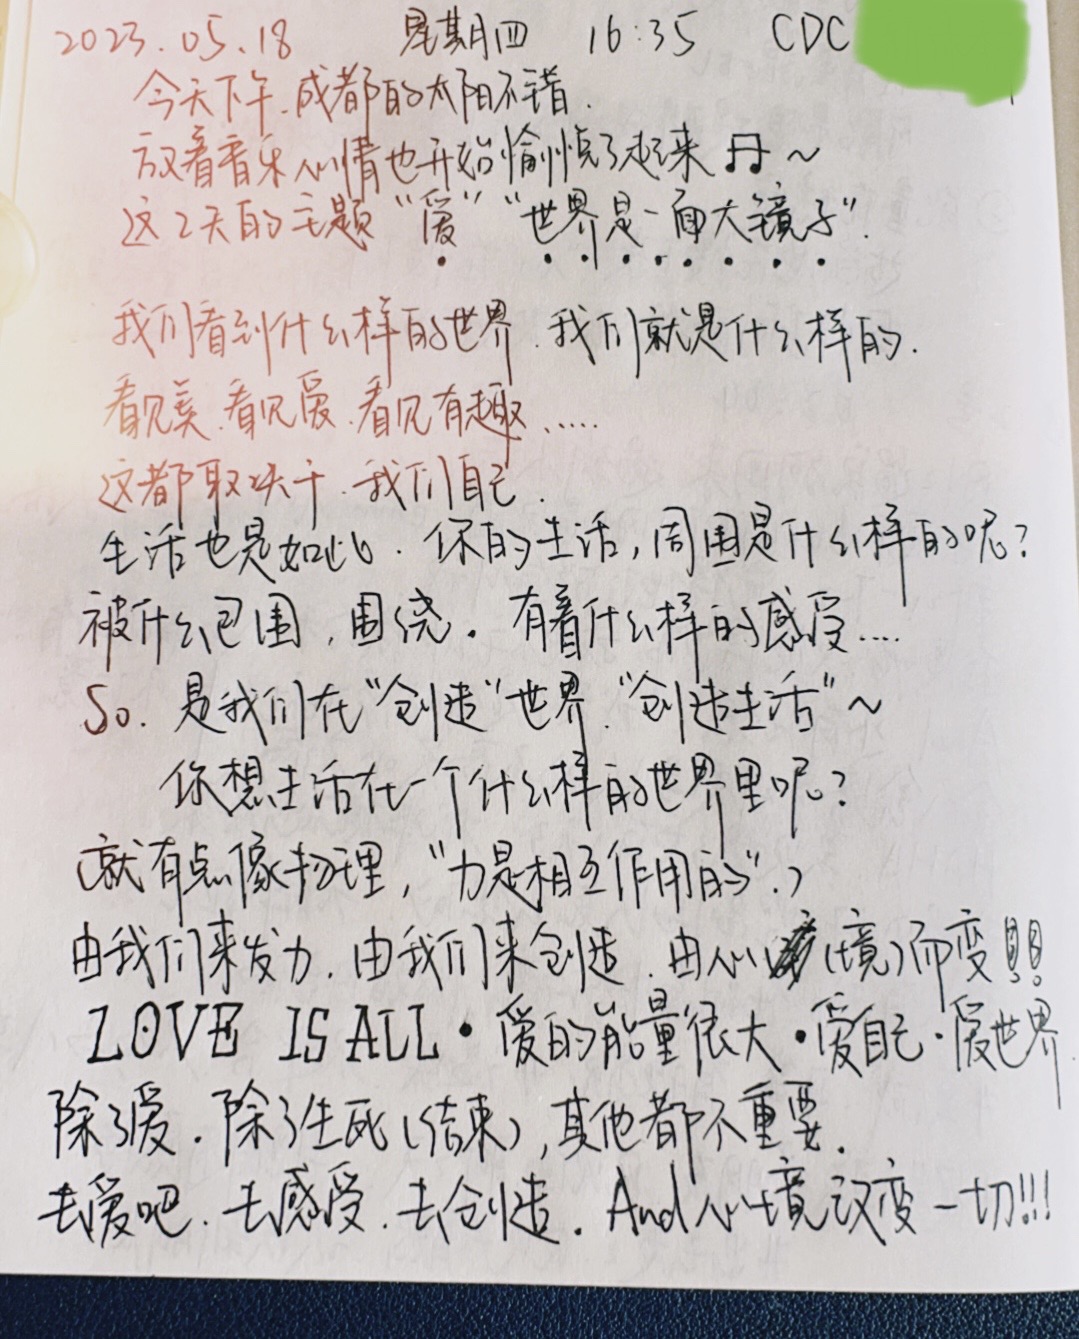 2023.05.18 星期四 16:35 CDC
今天下午.成都的太阳不错.
放着音乐心情也开始愉悦了起来♫~
这2天的主题“爱”“世界是一面大镜子”.
我们看到什么样的世界.我们就是什么样的.
看见美.看见爱.看见有趣.....
这都取决于.我们自己.
生活也是如此.你的生活,周围是什么样的呢?
被什么包围,围绕.有着什么样的感受....
So.是我们在“创造”世界.“创造生活”~
你想生活在一个什么样的世界里呢?
(就有点像物理,“力是相互作用的”.)
由我们来发力.由我们来创造.由心(境)而变!!
LOVE IS ALL·爱的能量很大·爱自己·爱世界.
除了爱.除了生死(结束),其他都不重要.
去爱吧.去感受.去创造.And心境改变一切!!!